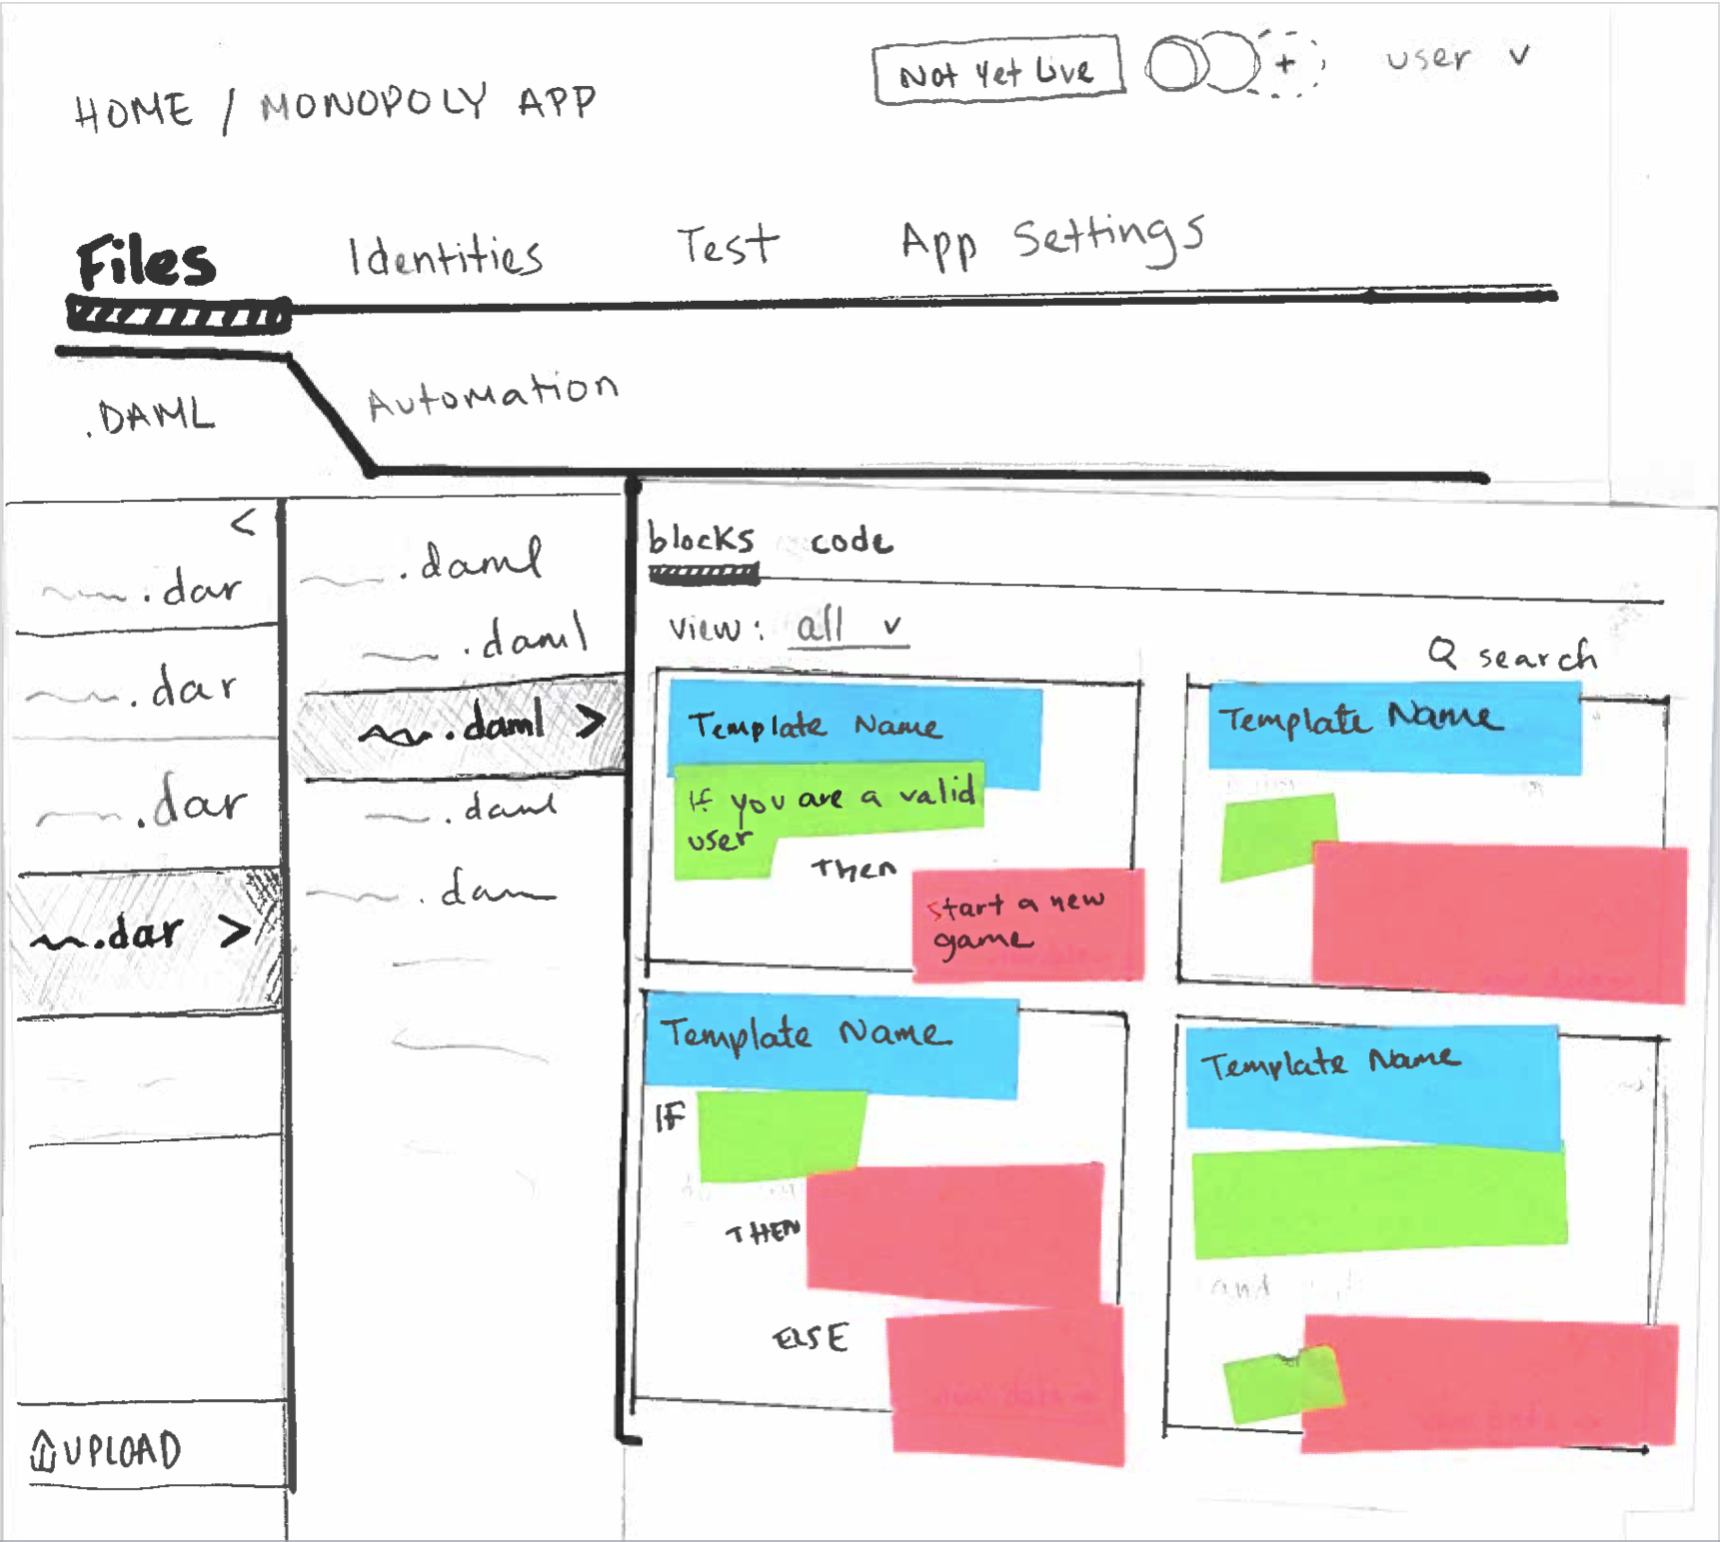 Not Yet Live
+
user v
HOME / MONOPOLY APP
Files
Identities
Test
App Settings
.DAML
Automation
<
.dar
.dar
.dar
.dar >
UPLOAD
.daml
.daml
.daml >
.daml
.dam
blocks
code
view: all v
search
Template Name
If you are a valid
user
Then
start a new
game
Template Name
Template Name
IF
THEN
ELSE
Template Name
and